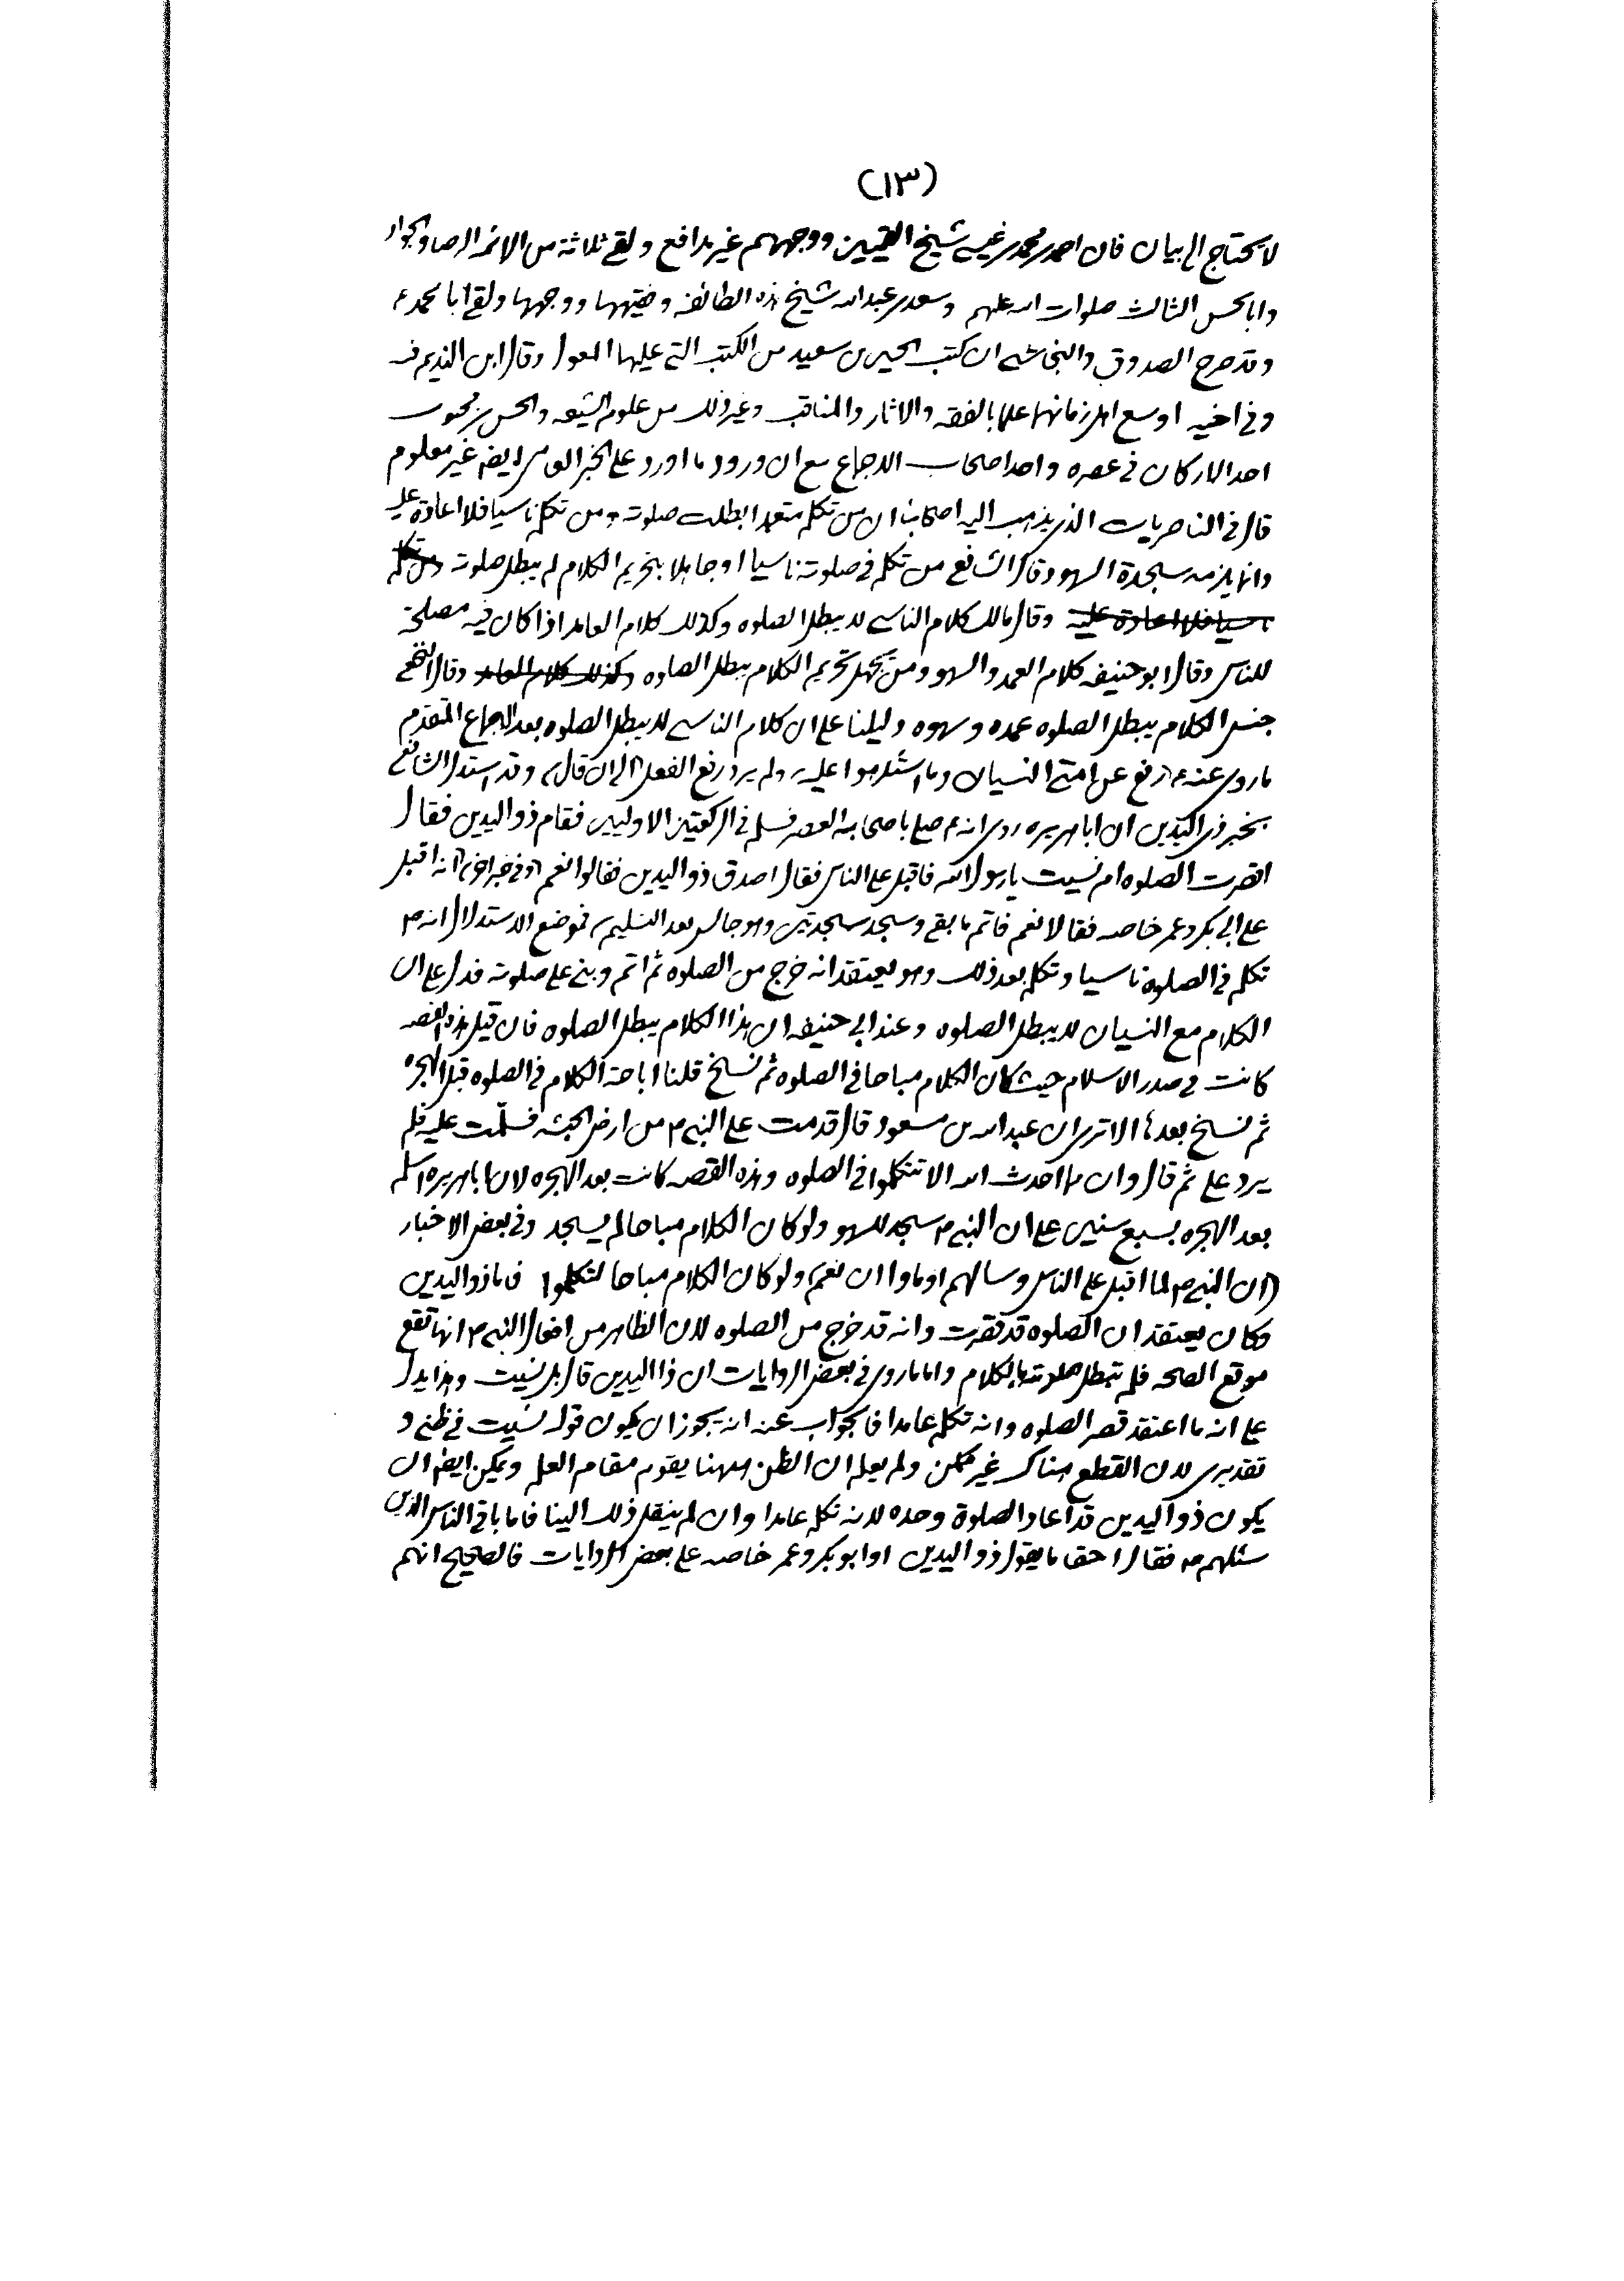 (١٣)
لا يحتاج الى بيان فان احمد بن محمد بن عيسى شيخ القميين ووجههم غير مدافع ولقى ثلاثة من الائمة الرضا والجواد
وابا الحسن الثالث صلوات الله عليهم وسعد بن عبد الله شيخ هذه الطائفه وفقيهها ووجهها ولقى ابا محمد ع
وقد صرح الصدوق والنجاشى ان كتب الحسين بن سعيد من الكتب التى عليها المعول وقال ابن النديم فيه
وفى اخيه اوسع اهل زمانهما علما بالفقه والاثار والمناقب وغير ذلك من علوم الشيعه والحسن بن محبوب
احد الاركان فى عصره واحد اصحاب الاجماع مع ان ورود ما اورد على الخبر العامى ايضا غير معلوم
قال فى الناصريات الذى يذهب اليه اصحابنا ان من تكلم متعمدا بطلت صلوته ومن تكلم ناسيا فلا اعادة عليه
وانما يلزمه سجدة السهو وقال الشافعى من تكلم فى صلوته ناسيا او جاهلا بتحريم الكلام لم يبطل صلوته ومن تكلم
ناسيا فلا اعادة عليه وقال مالك كلام الناسى لا يبطل الصلوه وكذلك كلام العامد اذا كان فيه مصلحة
للناس وقال ابو حنيفه كلام العمد والسهو ومن يجهل تحريم الكلام يبطل الصلوه وكذلك كلام العامد وقال النخعى
جنس الكلام يبطل الصلوه عمده وسهوه دليلنا على ان كلام الناسى لا يبطل الصلوه بعد الاجماع المتقدم
ما روى عنه ع رفع عن امتى النسيان وما استكرهوا عليه ولم يرد رفع الفعل الى ان قال وقد استدل الشافعى
بخبر ذى اليدين ان ابا هريره روى انه ع صلى باصحابه العصر فسلم فى الركعتين الاوليين فقام ذو اليدين فقال
اقصرت الصلوه ام نسيت يا رسول الله فاقبل على الناس فقال اصدق ذو اليدين فقالوا نعم وفى خبر اخر انه اقبل
على ابى بكر وعمر خاصه فقالا نعم فاتم ما بقى وسجد سجدتين وهو جالس بعد التسليم فموضع الاستدلال انه ص
تكلم فى الصلوة ناسيا وتكلم بعد ذلك وهو يعتقد انه خرج من الصلوه ثم اتم وبنى على صلوته فدل على ان
الكلام مع النسيان لا يبطل الصلوه وعند ابى حنيفه ان هذا الكلام يبطل الصلوه فان قيل هذه القصه
كانت فى صدر الاسلام حيث كان الكلام مباحا فى الصلوه ثم نسخ قلنا اباحة الكلام فى الصلوه قبل الهجره
ثم نسخ بعدها الا ترى ان عبد الله بن مسعود قال قدمت على النبى ص من ارض الحبشه فسلّمت عليه فلم
يرد على ثم قال وان مما احدث الله الا تتكلموا فى الصلوه وهذه القصه كانت بعد الهجره لان ابا هريره اسلم
بعد الهجره بسبع سنين على ان النبى ص سجد للسهو ولو كان الكلام مباحا لم يسجد وفى بعض الاخبار
(ان النبى ص لما اقبل على الناس وسالهم اوماوا ان نعم ولو كان الكلام مباحا لتكلموا فاما ذو اليدين
فكان يعتقد ان الصلوة قد قصرت وانه قد خرج من الصلوه لان الظاهر من افعال النبى ص انها تقع
موقع الصحه فلم تبطل صلوته بالكلام واما ما روى فى بعض الروايات ان ذا اليدين قال بل نسيت وهذا يدل
على انه ما اعتقد قصر الصلوه وانه تكلم عامدا فالجواب عنه انه يجوز ان يكون قوله نسيت فى ظنى و
تقديرى لان القطع هناك غير ممكن ولم يعلم ان الظن ههنا يقوم مقام العلم ويمكن ايضا ان
يكون ذو اليدين قد اعاد الصلوة وحده لانه تكلم عامدا وان لم ينقل ذلك الينا فاما باقى الناس الذين
سئلهم ص فقال احقا ما يقول ذو اليدين او ابو بكر وعمر خاصه على بعض الروايات فالصحيح انهم